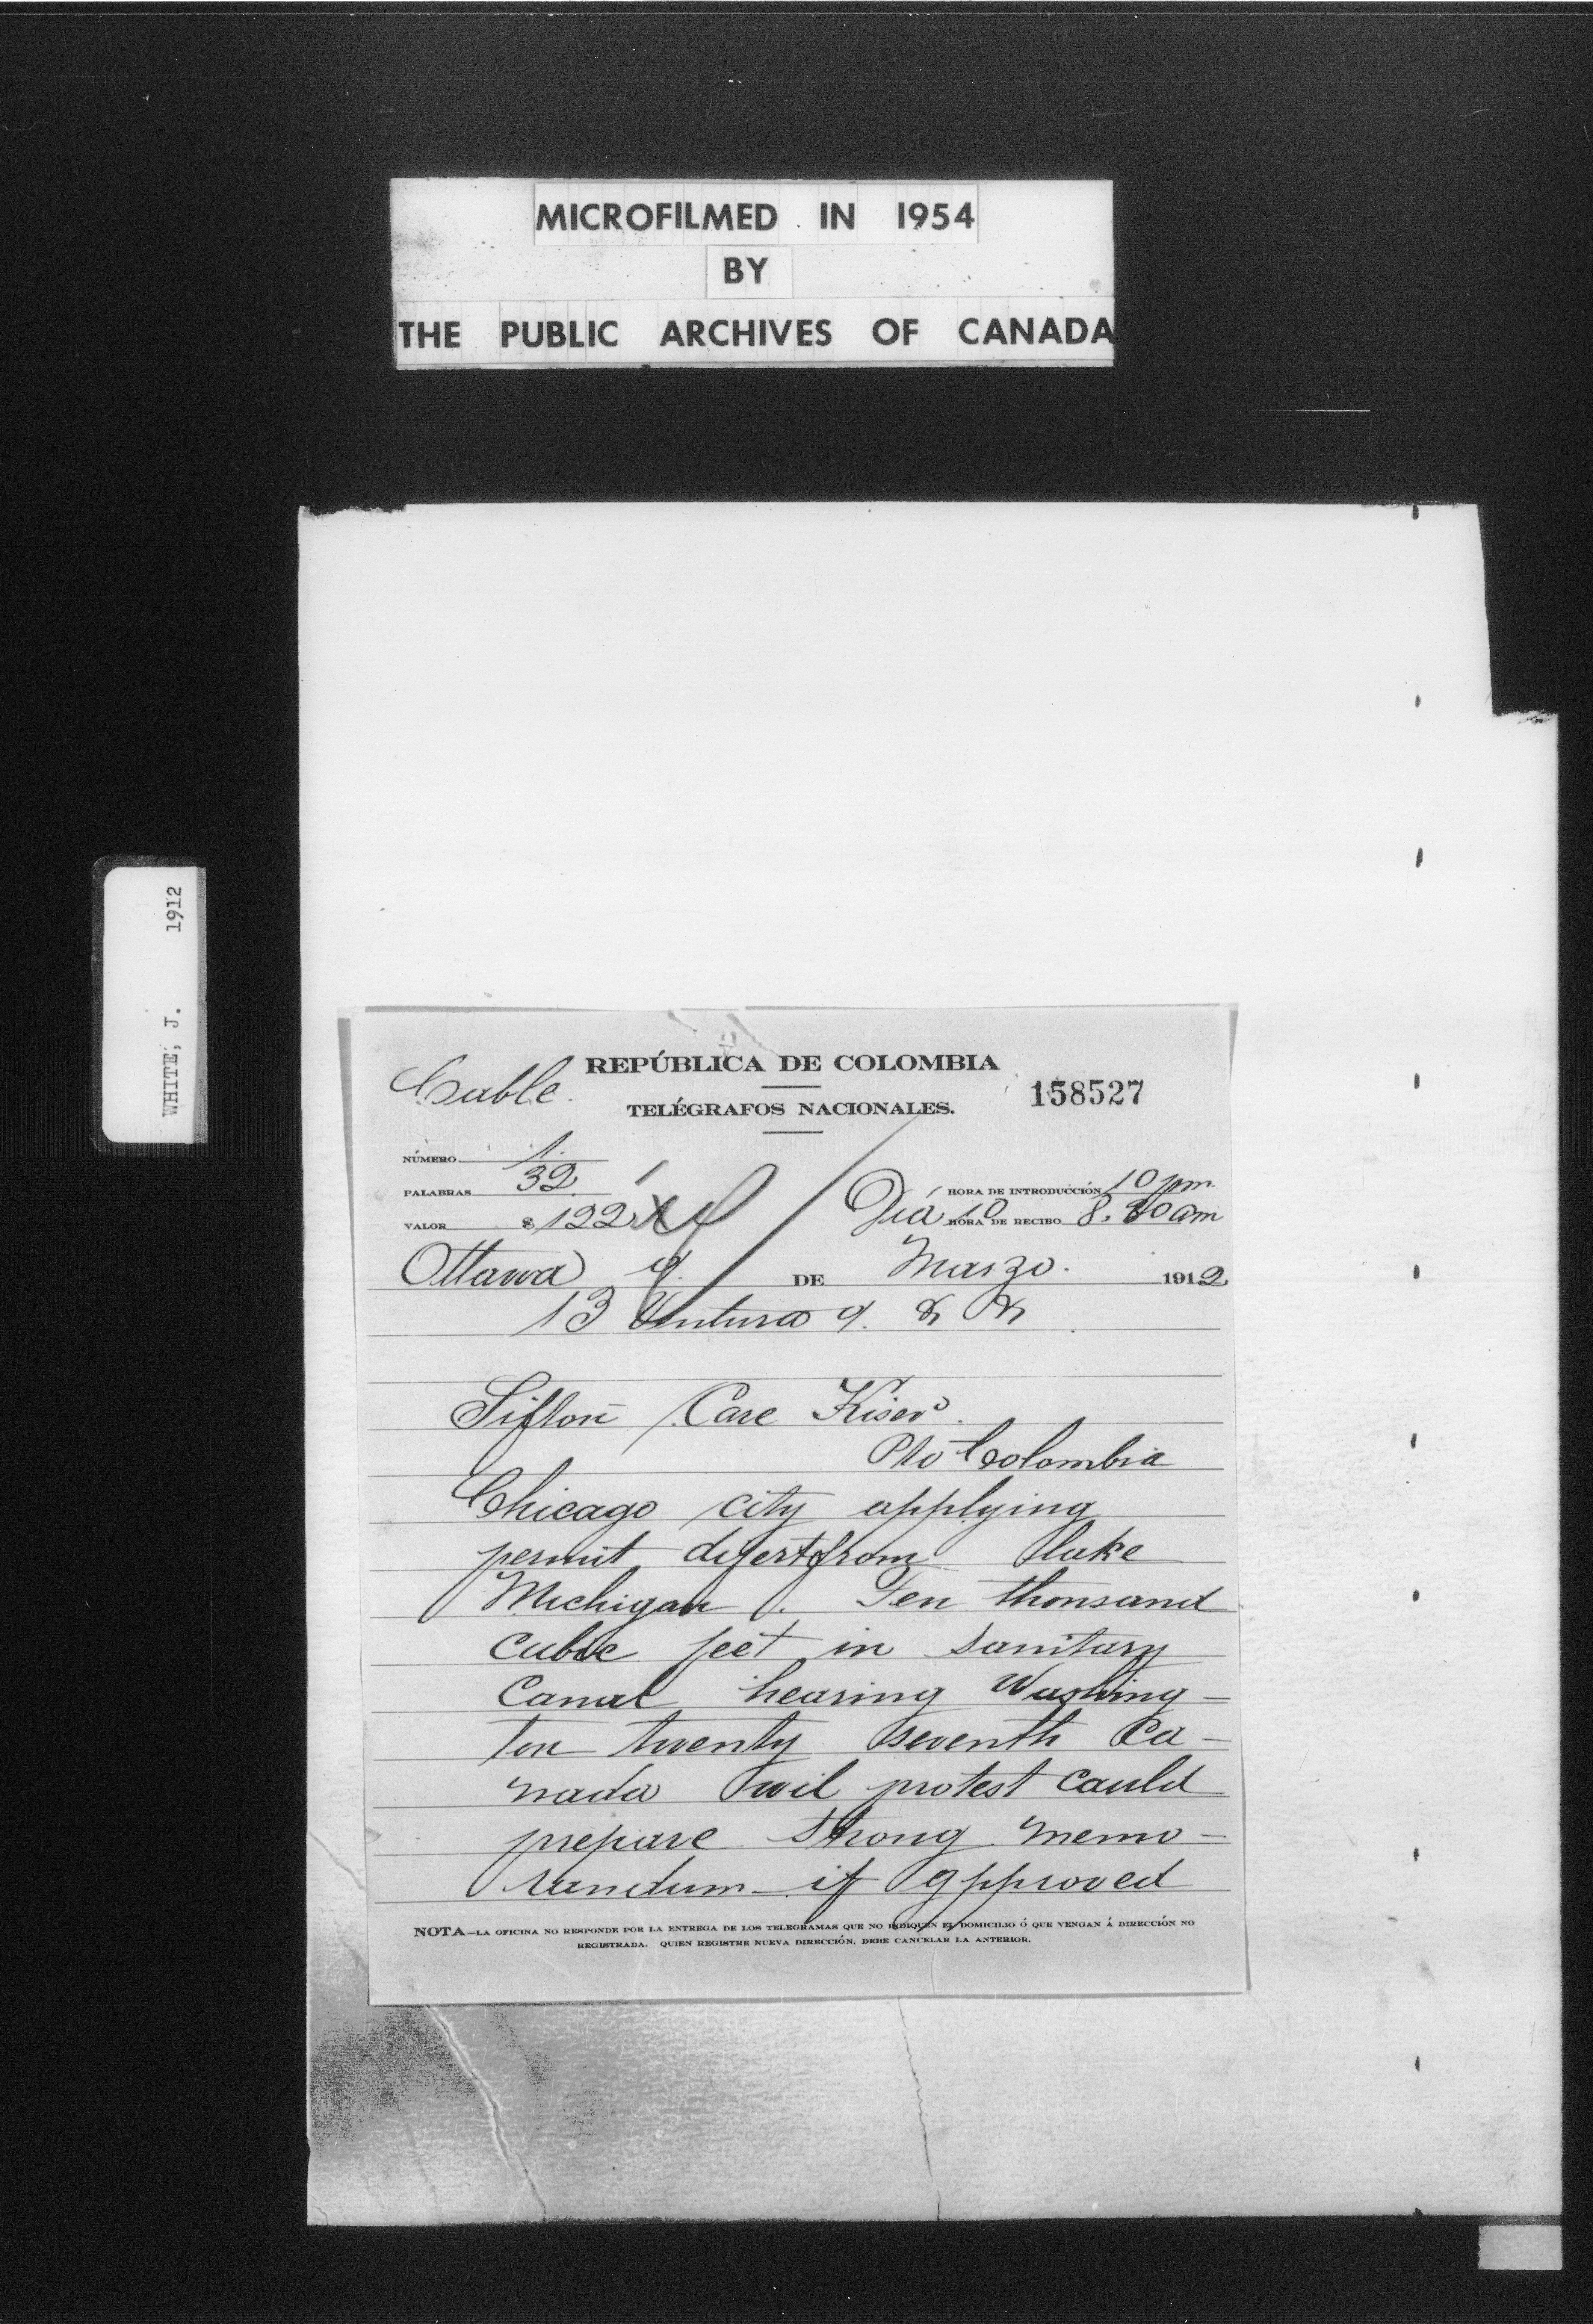 MICROFILMED IN 1954
BY
THE PUBLIC ARCHIVES OF CANADA
WHITE, J. 1912
Cable.
REPÚBLICA DE COLOMBIA
158527
TELÉGRAFOS NACIONALES.
NÚMERO 1.
PALABRAS 32
HORA DE INTRODUCCIÓN 10 pm.
VALOR $ 122
Día 10 HORA DE RECIBO 8. am
Ottawa 9. DE Marzo. 1912
13 Ventura 9.
Sifton Care Kiser.
Pto Colombia
Chicago city applying
permit divert from lake
Michigan. Ten thousand
cubic feet in sanitary
Canal hearing Washing-
ton twenty seventh Ca-
nada wil protest could
prepare strong memo-
randum if approved
NOTA—LA OFICINA NO RESPONDE POR LA ENTREGA DE LOS TELEGRAMAS QUE NO INDIQUEN EL DOMICILIO Ó QUE VENGAN Á DIRECCIÓN NO
REGISTRADA. QUIEN REGISTRE NUEVA DIRECCIÓN, DEBE CANCELAR LA ANTERIOR.